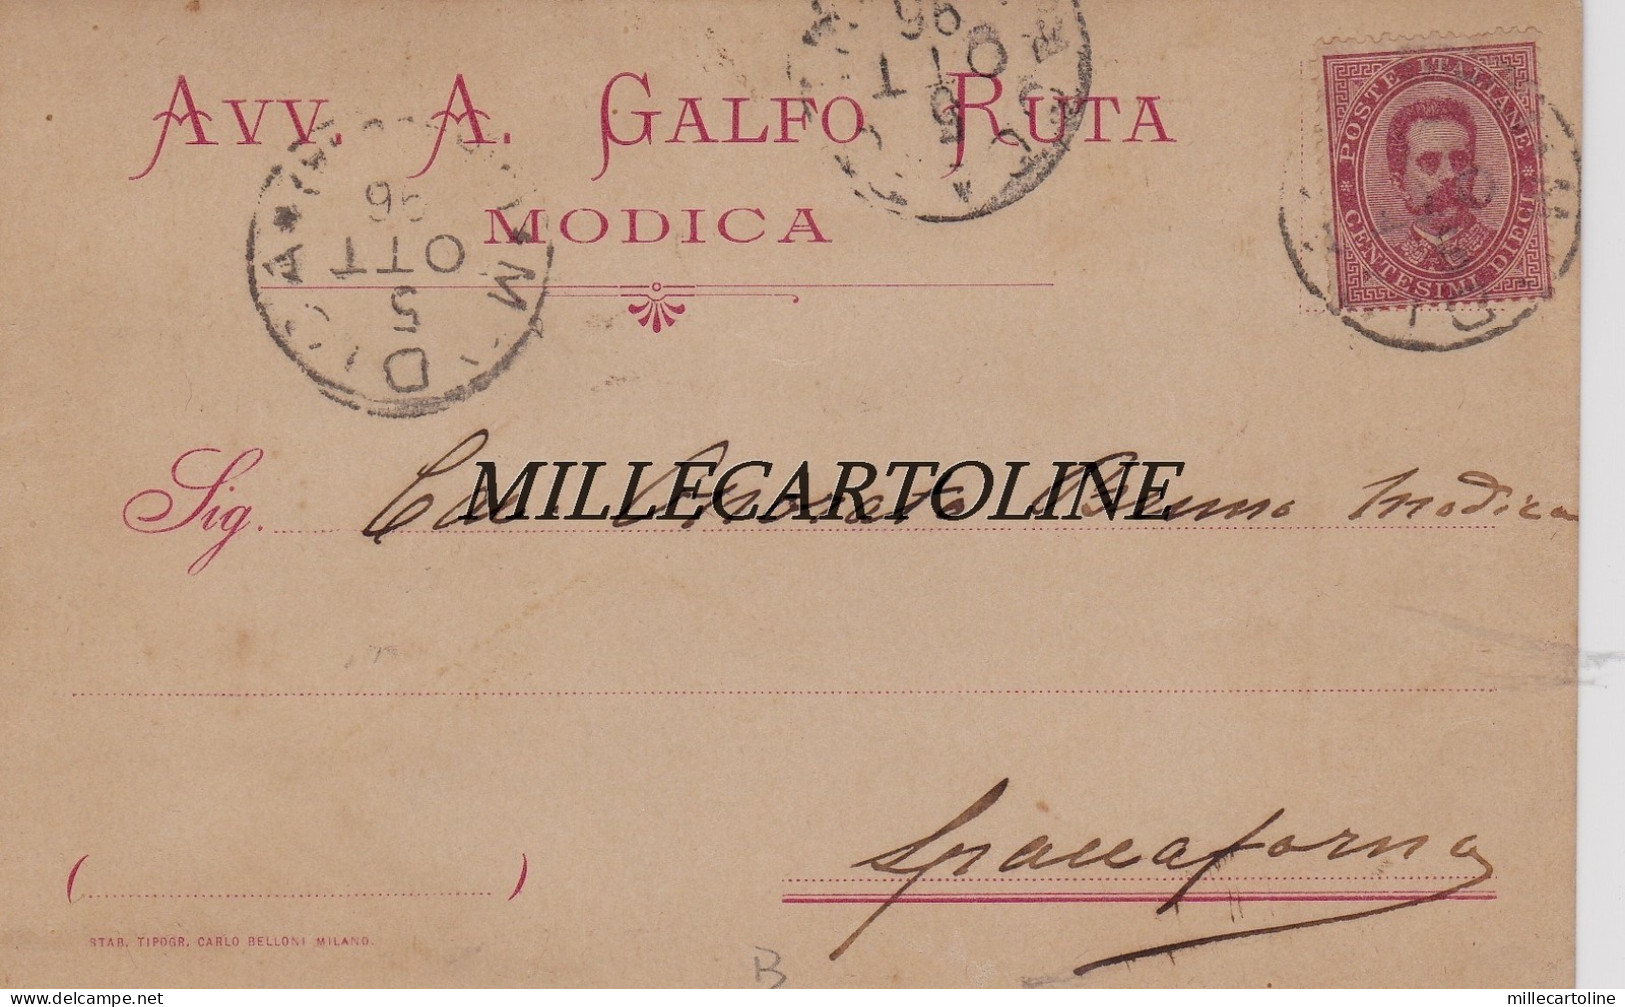 AVV. A. GALFO RUTA
MODICA
96
OTT
5
96
OTT
5
POSTE ITALIANE
CENTESIMI DIECI
Sig. Modica
MILLECARTOLINE
Spaccaforno
( )
STAB. TIPOGR. CARLO BELLONI MILANO.
B
delcampe.net
millecartoline